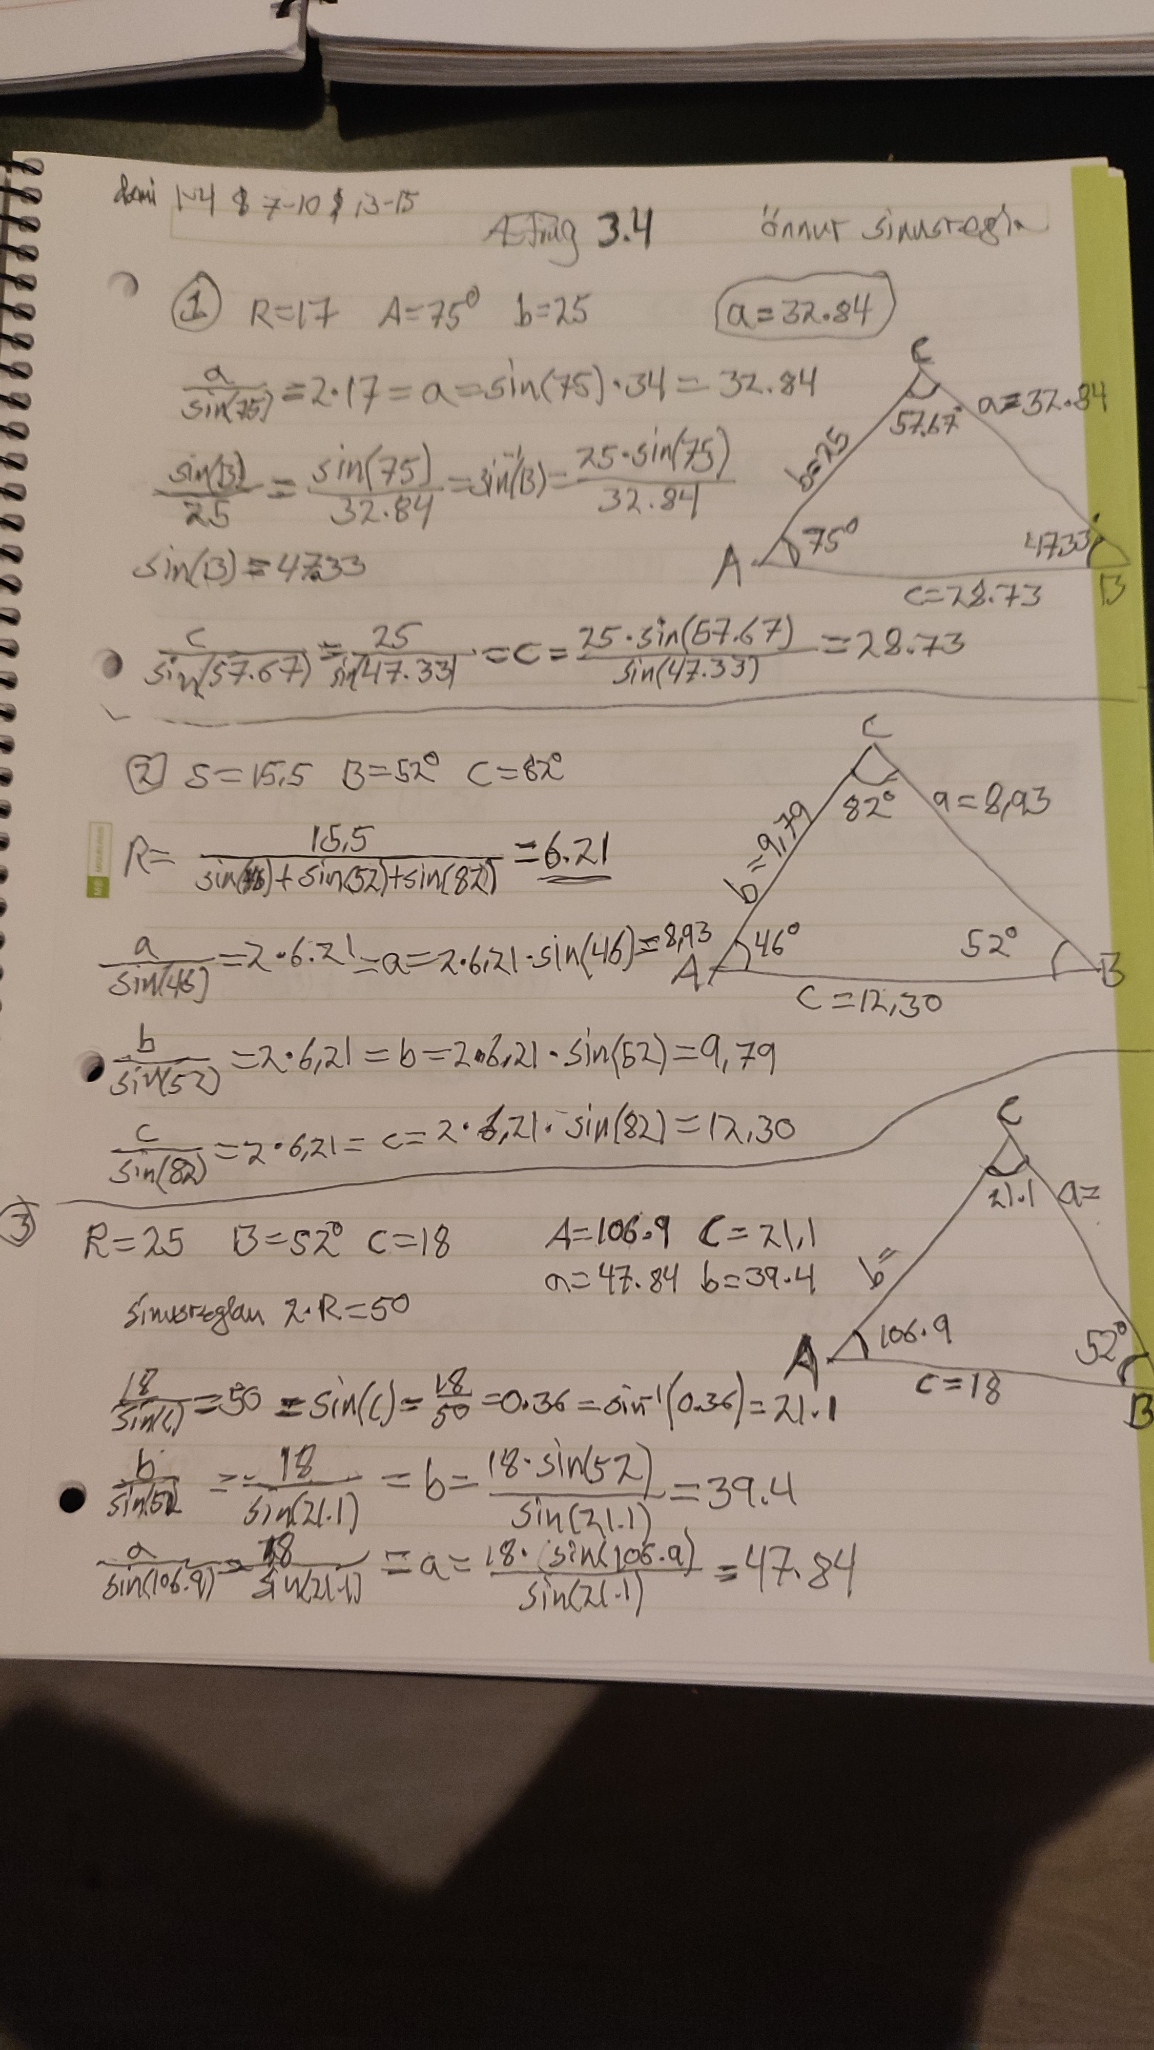 dæmi 1-4 & 7-10 & 13-15
3.4 önnur sinusregla
① R=17 A=75° b=25 a=32.84
a/sin(75) = 2·17 = a = sin(75)·34 = 32.84
sin(B)/25 = sin(75)/32.84 = sin⁻¹(B) = 25·sin(75)/32.84
sin(B) = 47.33
c/sin(57.67) = 25/sin(47.33) = c = 25·sin(57.67)/sin(47.33) = 28.73
C
57.67° a=32.84
b=25
A 75° 47.33° B
c=28.73
② S=15,5 B=52° C=82°
R= 15,5/sin(46)+sin(52)+sin(82) = 6.21
a/sin(46) = 2·6.21 = a = 2·6,21·sin(46) = 8,93
b/sin(52) = 2·6,21 = b = 2·6,21·sin(52) = 9,79
c/sin(82) = 2·6,21 = c = 2·6,21·sin(82) = 12,30
C
82° a=8,93
b=9,79
A 46° 52° B
c=12,30
③ R=25 B=52° c=18 A=106.9 C=21,1
a=47.84 b=39.4
sinusreglan 2·R=50
18/sin(C) = 50 = sin(C) = 18/50 = 0.36 = sin⁻¹(0.36) = 21.1
b/sin(52) = 18/sin(21.1) = b = 18·sin(52)/sin(21.1) = 39.4
a/sin(106.9) = 18/sin(21.1) = a = 18·sin(106.9)/sin(21.1) = 47.84
C
21.1 a=
b=
A 106.9 52° B
c=18